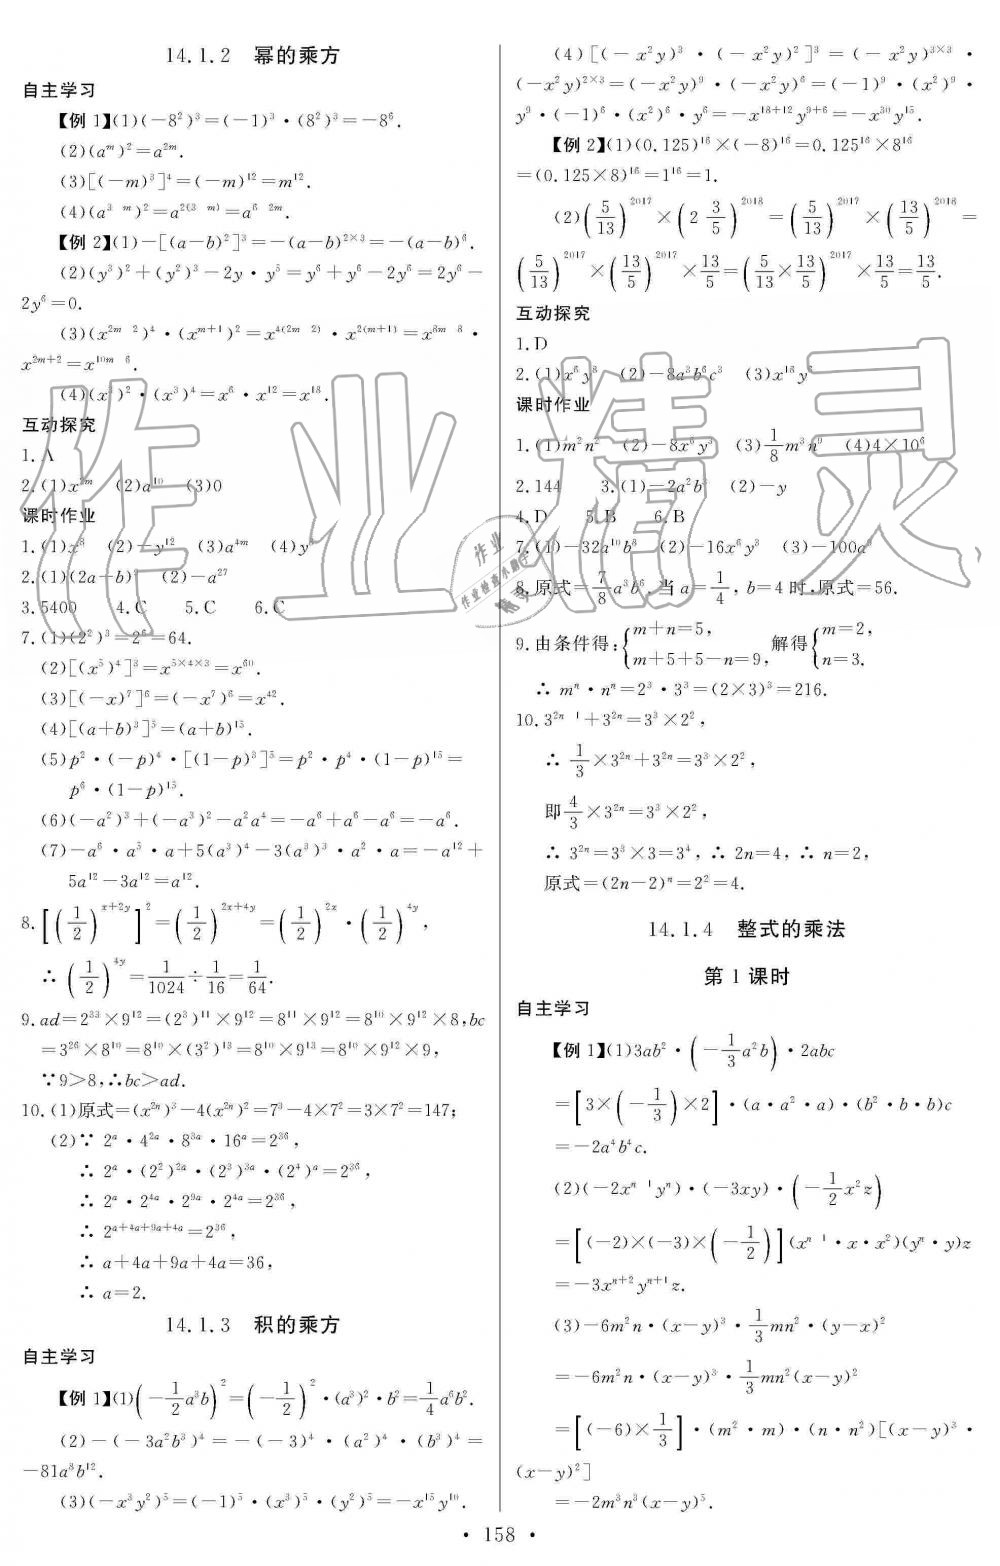 14.1.2 幂的乘方
自主学习
【例 1】(1)(-8²)³=(-1)³·(8²)³=-8⁶.
(2)(aᵐ)²=a²ᵐ.
(3)[(-m)³]⁴=(-m)¹²=m¹².
(4)(a³ ᵐ)²=a²⁽³ ᵐ⁾=a⁶ ²ᵐ.
【例 2】(1)-[(a-b)²]³=-(a-b)²ˣ³=-(a-b)⁶.
(2)(y³)²+(y²)³-2y·y⁵=y⁶+y⁶-2y⁶=2y⁶-
2y⁶=0.
(3)(x²ᵐ ²)⁴·(xᵐ⁺¹)²=x⁴⁽²ᵐ ²⁾·x²⁽ᵐ⁺¹⁾=x⁸ᵐ ⁸·
x²ᵐ⁺²=x¹⁰ᵐ ⁶.
(4)(x³)²·(x³)⁴=x⁶·x¹²=x¹⁸.
互动探究
1. A
2.(1)x²ᵐ (2)a¹⁰ (3)0
课时作业
1.(1)x⁸ (2)-y¹² (3)a⁴ᵐ (4)y
2.(1)(2a+b) (2)-a²⁷
3.5400 4.C 5.C 6.C
7.(1)(2²)³=2⁶=64.
(2)[(x⁵)⁴]³=x⁵ˣ⁴ˣ³=x⁶⁰.
(3)[(-x)⁷]⁶=(-x⁷)⁶=x⁴².
(4)[(a+b)³]⁵=(a+b)¹⁵.
(5)p²·(-p)⁴·[(1-p)³]⁵=p²·p⁴·(1-p)¹⁵=
p⁶·(1-p)¹⁵.
(6)(-a²)³+(-a³)²-a²a⁴=-a⁶+a⁶-a⁶=-a⁶.
(7)-a⁶·a⁵·a+5(a³)⁴-3(a³)³·a²·a=-a¹²+
5a¹²-3a¹²=a¹².
8.[(1/2)^(x+2y)]²=(1/2)^(2x+4y)=(1/2)^(2x)·(1/2)^(4y),
∴(1/2)^(4y)=1/1024÷1/16=1/64.
9.ad=2³³×9¹²=(2³)¹¹×9¹²=8¹¹×9¹²=8¹⁰×9¹²×8,bc
=3²⁶×8¹⁰=8¹⁰×(3²)¹³=8¹⁰×9¹³=8¹⁰×9¹²×9,
∵9>8,∴bc>ad.
10.(1)原式=(x²ⁿ)³-4(x²ⁿ)²=7³-4×7²=3×7²=147;
(2)∵2ᵃ·4²ᵃ·8³ᵃ·16ᵃ=2³⁶,
∴2ᵃ·(2²)²ᵃ·(2³)³ᵃ·(2⁴)ᵃ=2³⁶,
∴2ᵃ·2⁴ᵃ·2⁹ᵃ·2⁴ᵃ=2³⁶,
∴2ᵃ⁺⁴ᵃ⁺⁹ᵃ⁺⁴ᵃ=2³⁶,
∴a+4a+9a+4a=36,
∴a=2.
14.1.3 积的乘方
自主学习
【例 1】(1)(-1/2 a³b)²=(-1/2)²·(a³)²·b²=1/4 a⁶b².
(2)-(-3a²b³)⁴=-(-3)⁴·(a²)⁴·(b³)⁴=
-81a⁸b¹².
(3)(-x³y²)⁵=(-1)⁵·(x³)⁵·(y²)⁵=-x¹⁵y¹⁰.
(4)[(-x²y)³·(-x²y)²]³=(-x²y)³ˣ³·
(-x²y)²ˣ³=(-x²y)⁹·(-x²y)⁶=(-1)⁹·(x²)⁹·
y⁹·(-1)⁶·(x²)⁶·y⁶=-x¹⁸⁺¹²y⁹⁺⁶=-x³⁰y¹⁵.
【例 2】(1)(0.125)¹⁶×(-8)¹⁶=0.125¹⁶×8¹⁶
=(0.125×8)¹⁶=1¹⁶=1.
(2)(5/13)²⁰¹⁷×(2 3/5)²⁰¹⁸=(5/13)²⁰¹⁷×(13/5)²⁰¹⁸=
(5/13)²⁰¹⁷×(13/5)²⁰¹⁷×13/5=(5/13×13/5)²⁰¹⁷×13/5=13/5.
互动探究
1.D
2.(1)x⁶y⁸ (2)-8a³b⁶c³ (3)x¹⁸y
课时作业
1.(1)m²n² (2)-8x⁶y³ (3)1/8 m³n⁹ (4)4×10⁶
2.144 3.(1)-2a²b (2)-y
4.D 5.B 6.B
7.(1)-32a¹⁰b⁸ (2)-16x⁶y³ (3)-100a⁹
8.原式=7/8 a³b⁶,当a=1/4,b=4时,原式=56.
9.由条件得:{m+n=5, m+5+5-n=9, 解得{m=2, n=3.
∴mⁿ·nⁿ=2³·3³=(2×3)³=216.
10.3²ⁿ ¹+3²ⁿ=3³×2²,
∴1/3×3²ⁿ+3²ⁿ=3³×2²,
即4/3×3²ⁿ=3³×2²,
∴3²ⁿ=3³×3=3⁴,∴2n=4,∴n=2,
原式=(2n-2)ⁿ=2²=4.
14.1.4 整式的乘法
第 1 课时
自主学习
【例 1】(1)3ab²·(-1/3 a²b)·2abc
=[3×(-1/3)×2]·(a·a²·a)·(b²·b·b)c
=-2a⁴b⁴c.
(2)(-2xⁿ ¹yⁿ)·(-3xy)·(-1/2 x²z)
=[(-2)×(-3)×(-1/2)](xⁿ ¹·x·x²)(yⁿ·y)z
=-3xⁿ⁺²yⁿ⁺¹z.
(3)-6m²n·(x-y)³·1/3 mn²·(y-x)²
=-6m²n·(x-y)³·1/3 mn²(x-y)²
=[(-6)×1/3]·(m²·m)·(n·n²)[(x-y)³·
(x-y)²]
=-2m³n³(x-y)⁵.
· 158 ·
作业精灵